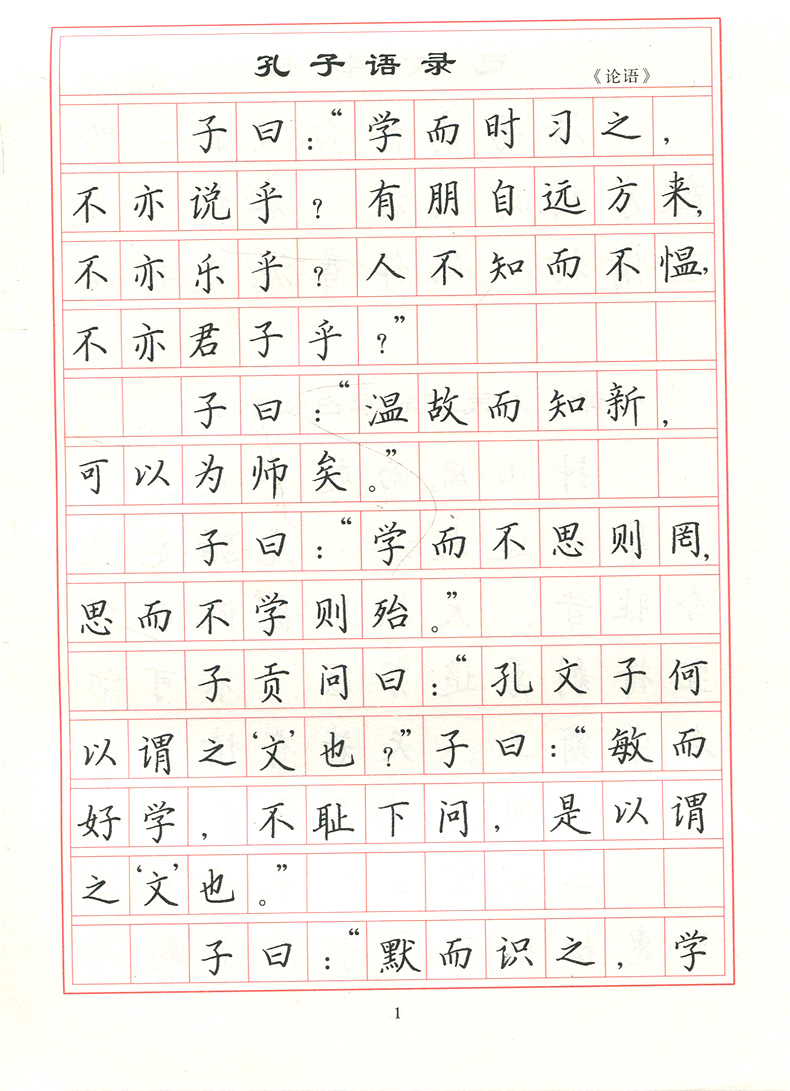 孔子语录
《论语》
子曰：“学而时习之，
不亦说乎？有朋自远方来，
不亦乐乎？人不知而不愠，
不亦君子乎？”
子曰：“温故而知新，
可以为师矣。”
子曰：“学而不思则罔，
思而不学则殆。”
子贡问曰：“孔文子何
以谓之‘文’也？”子曰：“敏而
好学，不耻下问，是以谓
之‘文’也。”
子曰：“默而识之，学
1